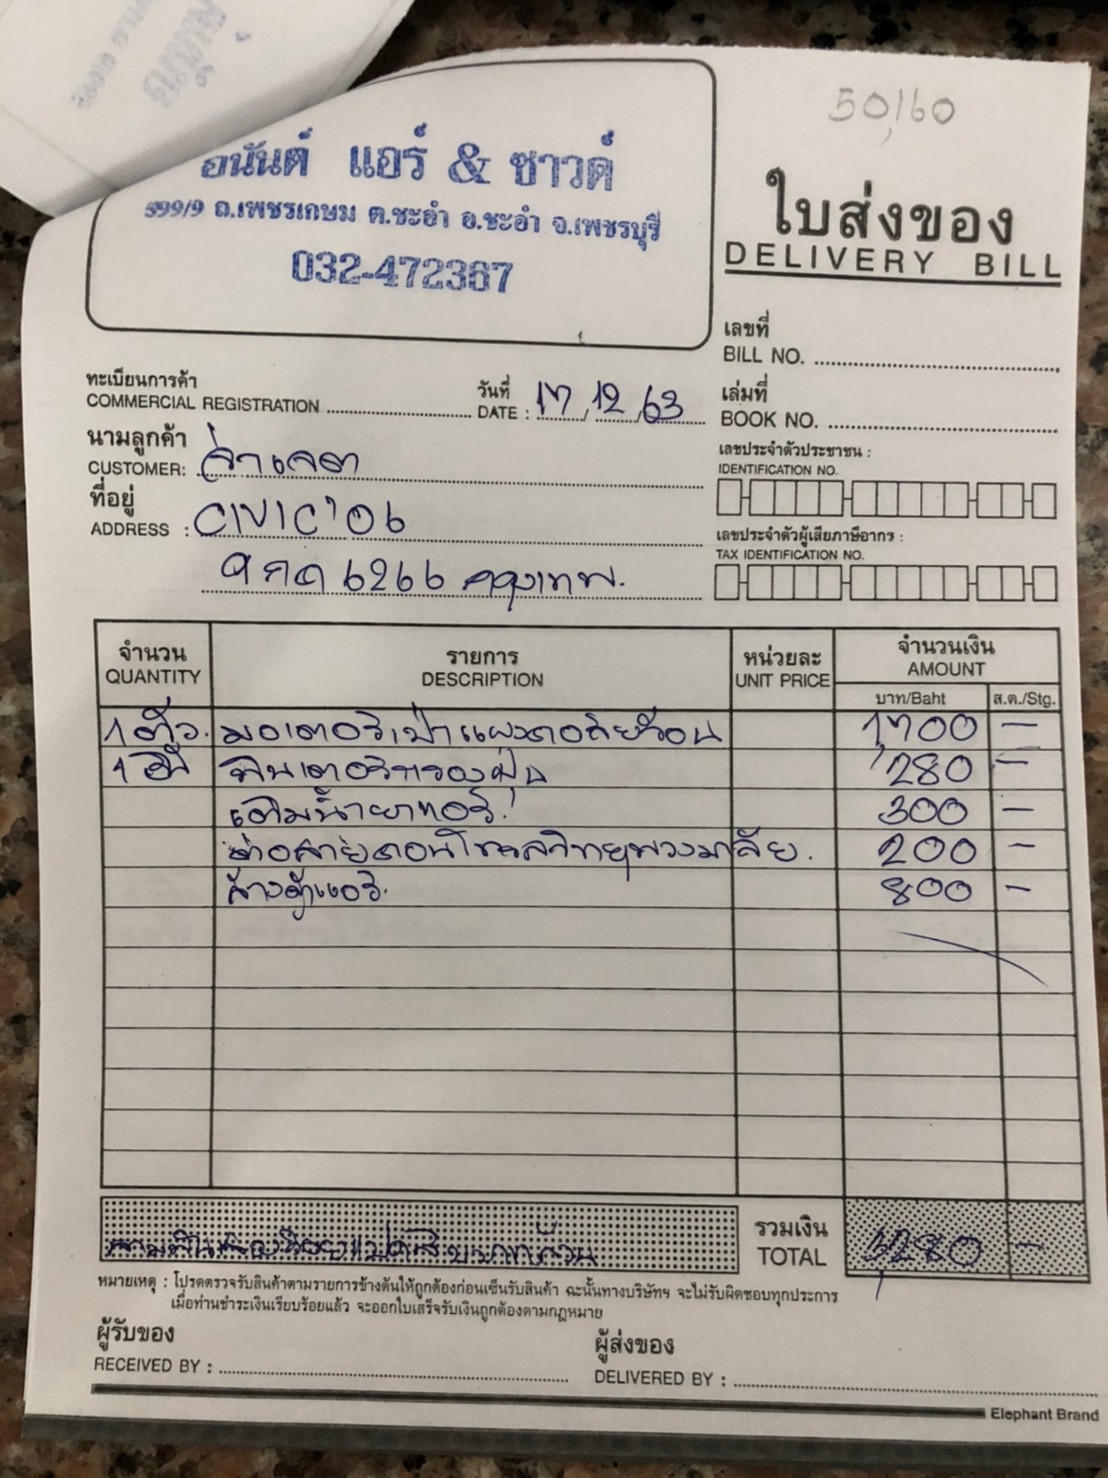 50,160
อนันต์ แอร์ & ซาวด์
599/9 ถ.เพชรเกษม ต.ชะอำ อ.ชะอำ จ.เพชรบุรี
032-472367
ใบส่งของ
DELIVERY BILL
เลขที่
BILL NO.
ทะเบียนการค้า
COMMERCIAL REGISTRATION
วันที่
DATE : 17/12/63
เล่มที่
BOOK NO.
นามลูกค้า
CUSTOMER:
ที่อยู่
ADDRESS : CIVIC'06
6266 กรุงเทพ.
เลขประจำตัวประชาชน :
IDENTIFICATION NO.
เลขประจำตัวผู้เสียภาษีอากร :
TAX IDENTIFICATION NO.
จำนวน รายการ หน่วยละ จำนวนเงิน
QUANTITY DESCRIPTION UNIT PRICE AMOUNT
บาท/Baht ส.ต./Stg.
1 ตัว. มอเตอร์เป่าแผงคอล์ยร้อน 1,700 -
1 อัน ฟิลเตอร์กรองฝุ่น 280 -
เติมน้ำยาแอร์. 300 -
ต่อสายคอนโทรลวิทยุพวงมาลัย. 200 -
ล้างตู้แอร์. 800 -
สามพันสองร้อยแปดสิบบาทถ้วน
รวมเงิน
TOTAL 3,280 -
หมายเหตุ : โปรดตรวจรับสินค้าตามรายการข้างต้นให้ถูกต้องก่อนเซ็นรับสินค้า ฉะนั้นทางบริษัทฯ จะไม่รับผิดชอบทุกประการ
เมื่อท่านชำระเงินเรียบร้อยแล้ว จะออกใบเสร็จรับเงินถูกต้องตามกฎหมาย
ผู้รับของ
RECEIVED BY :
ผู้ส่งของ
DELIVERED BY :
Elephant Brand